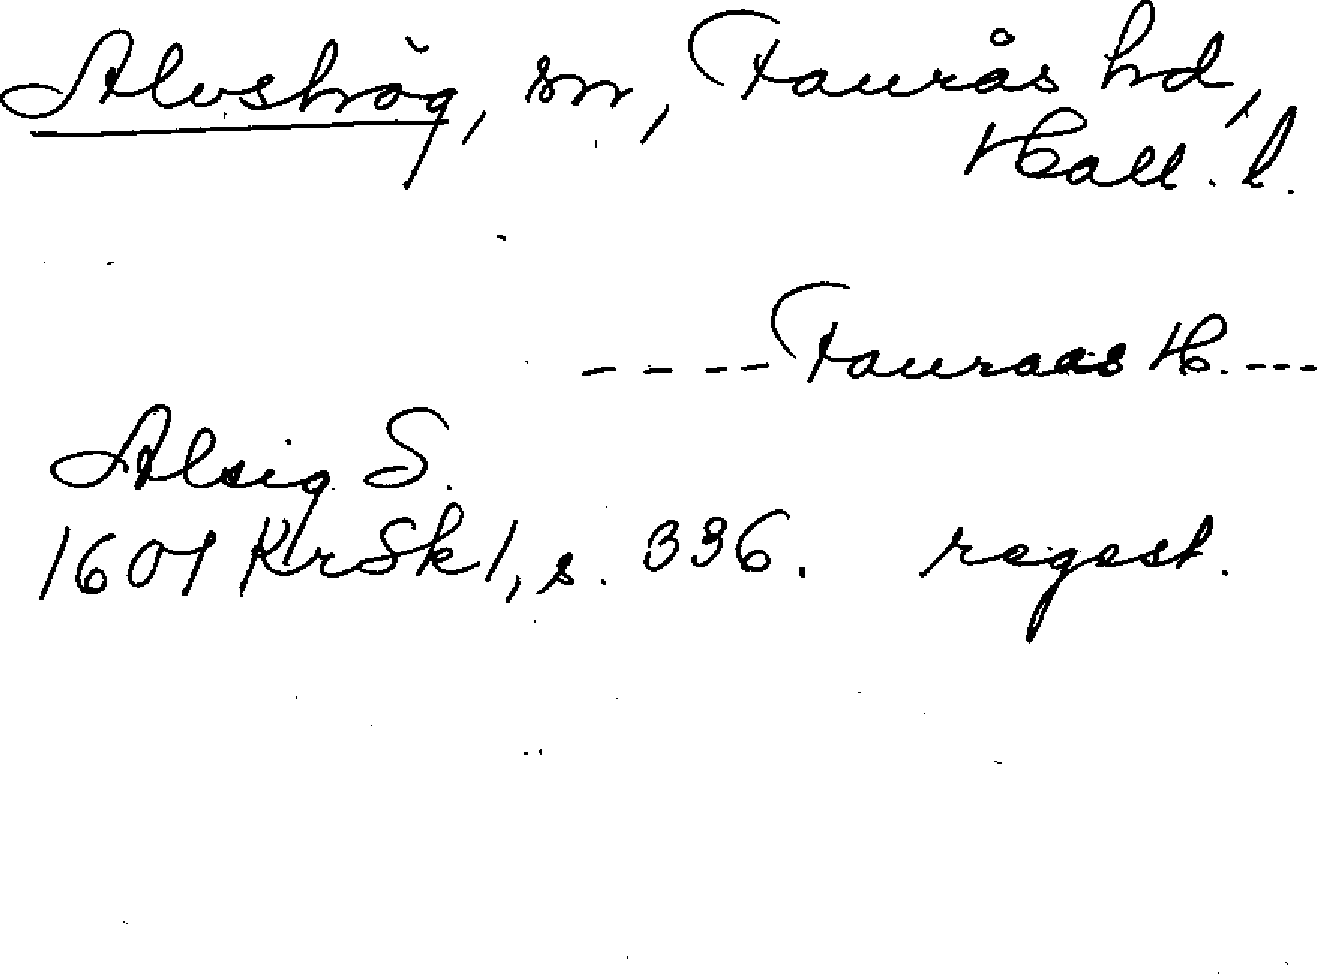 Alvshög, sn, Faurås hd,
Hall. l.
---- Fauraas H. ---
Alsig S.
1607 KrSk 1, s. 336. regest.